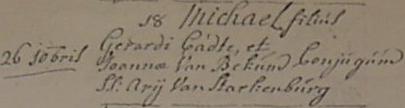 18 Michael filius
Gerardi Gadte, et
26 10bris Joannæ Van Bekum Conjugum
St: Arij Van Starkenburg